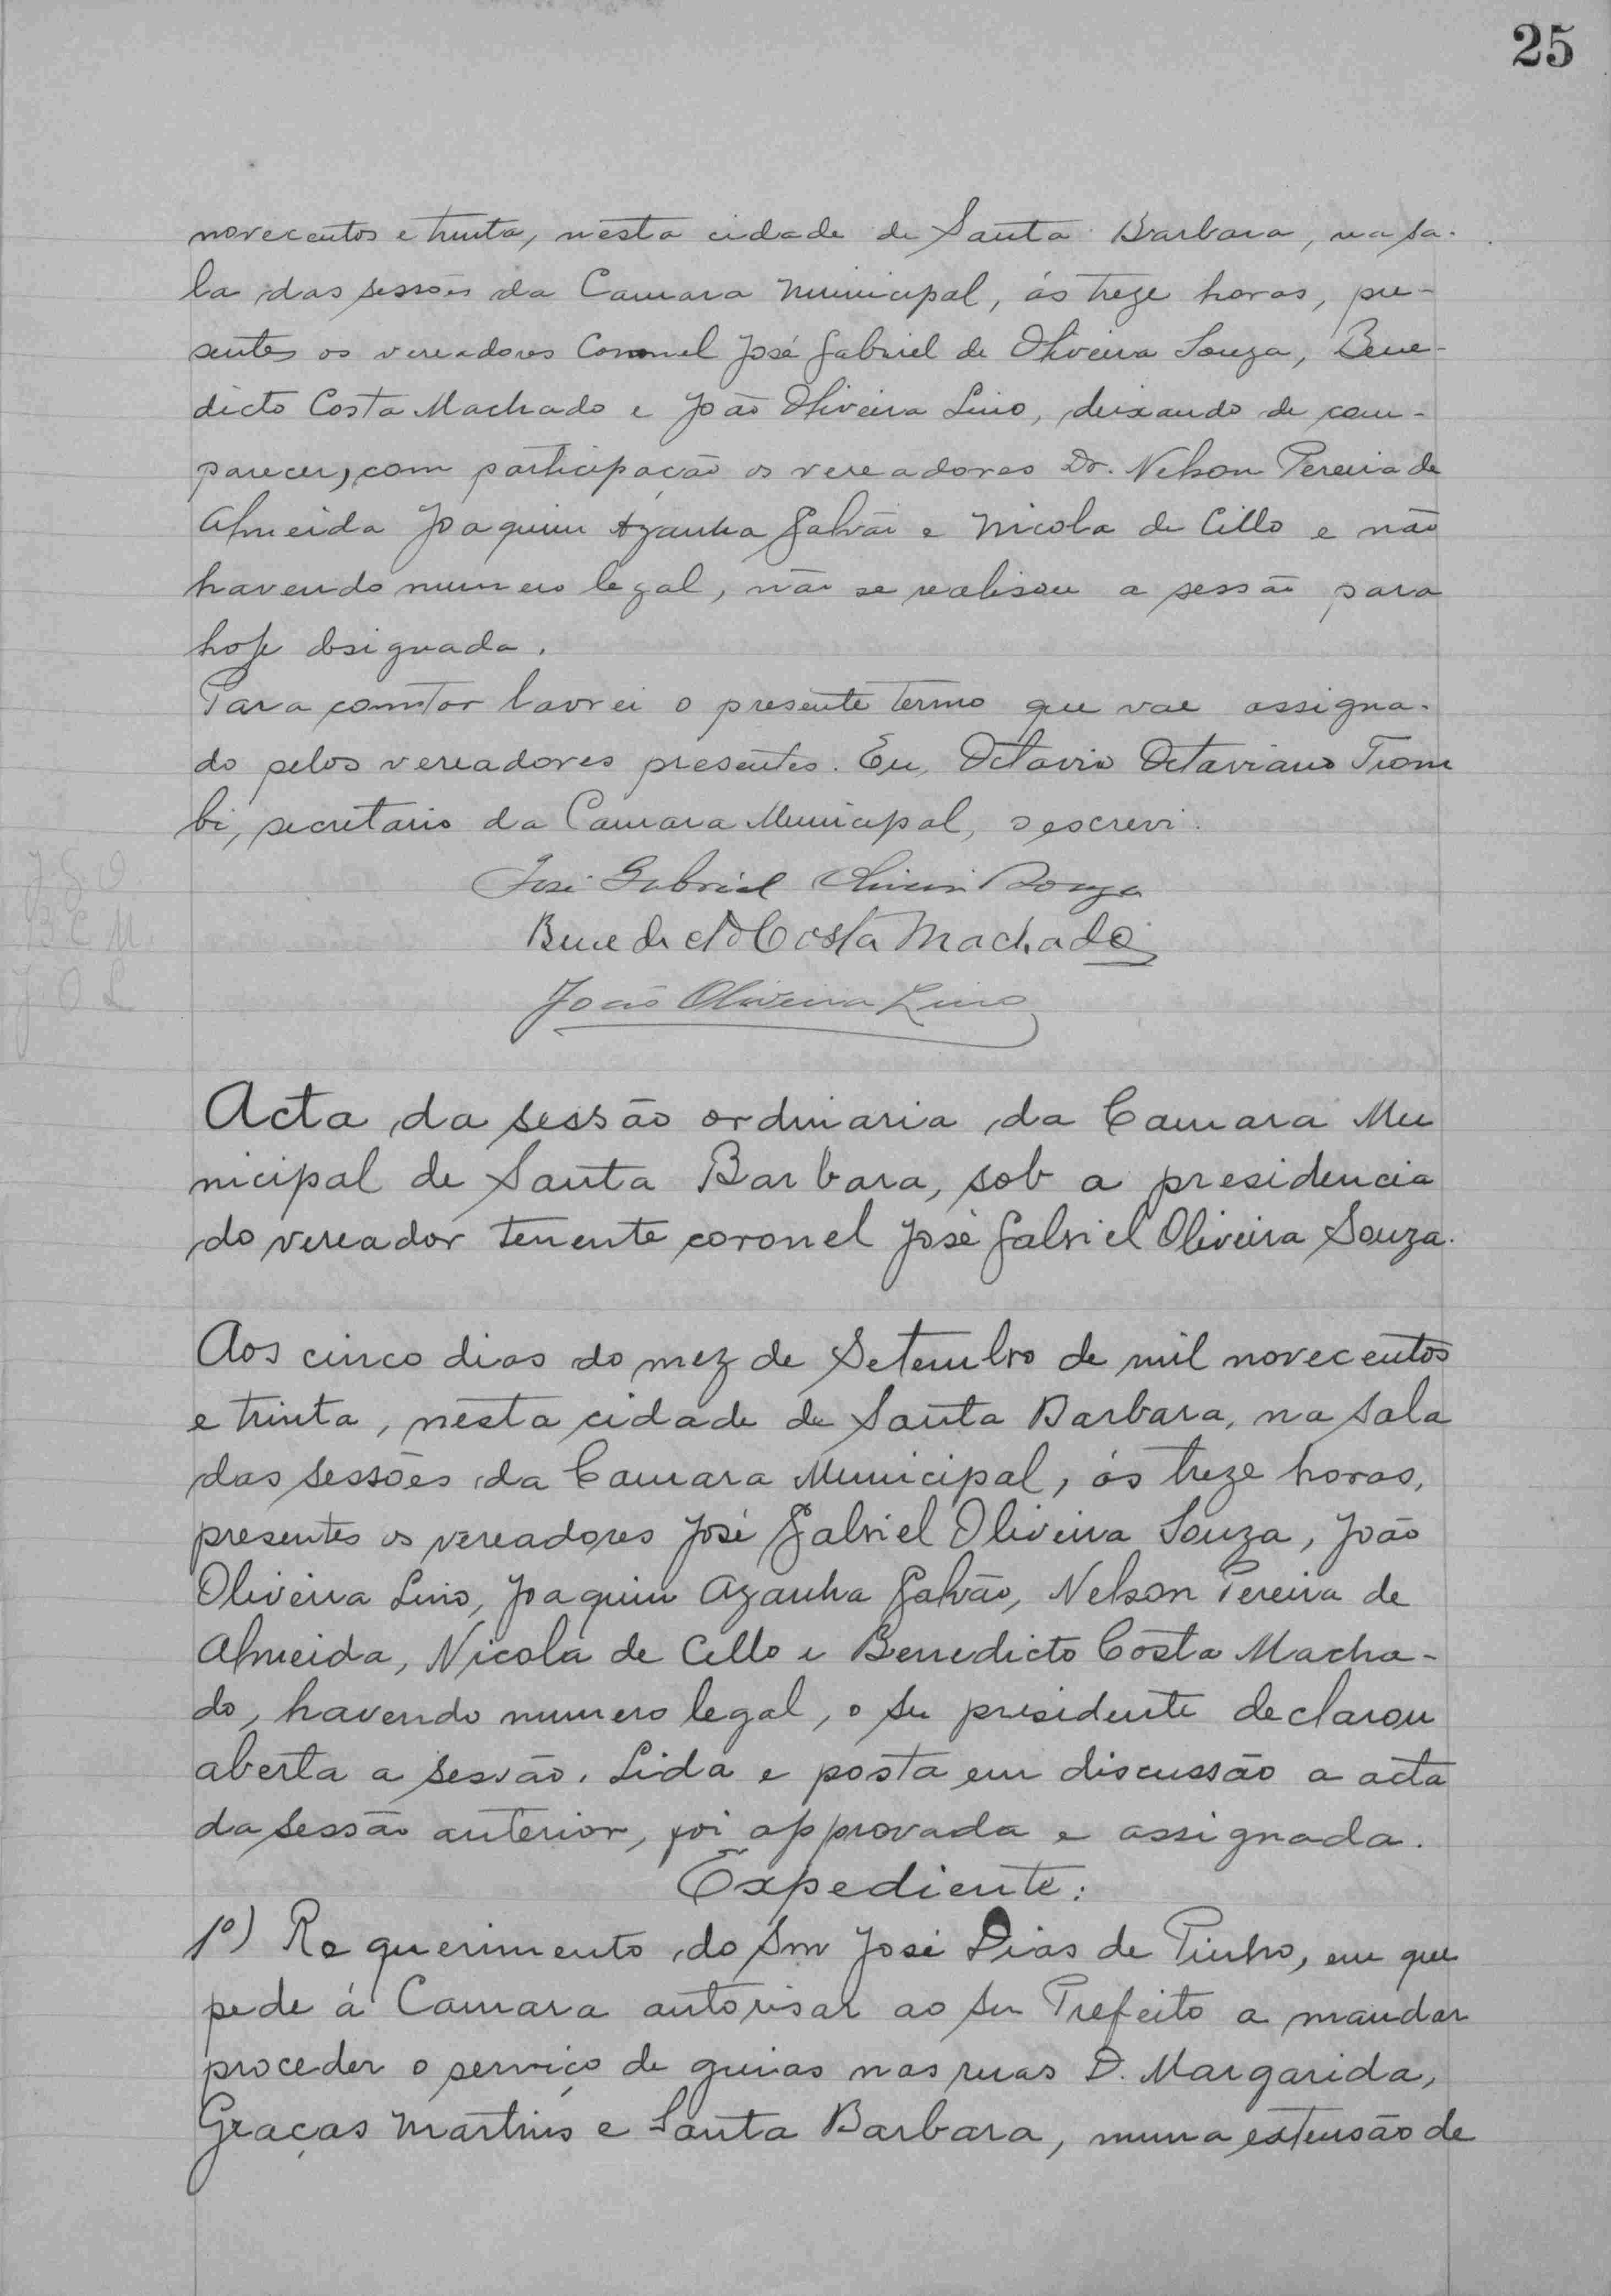 25
novecentos e trinta, nesta cidade de Santa Barbara, na sa-
la das sessões da Camara Municipal, ás treze horas, pre-
sentes os vereadores Coronel José Gabriel de Oliveira Souza, Bene-
dicto Costa Machado e João Oliveira Lino, deixando de com-
parecer, com participação os vereadores Dr. Nelson Pereira de
Almeida Joaquim Azanha Galvão e Nicola de Cillo e não
havendo numero legal, não se realisou a sessão para
hoje designada.
Para constar lavrei o presente termo que vae assigna-
do pelos vereadores presentes. Eu, Octavio Octaviano Trom
bi, secretario da Camara Municipal, o escrevi.
José Gabriel Oliveira Souza
Benedicto Costa Machado
João Oliveira Lino
J G O
B C M
J O L
Acta da sessão ordinaria da Camara Mu
nicipal de Santa Barbara, sob a presidencia
do vereador tenente coronel José Gabriel Oliveira Souza.
Aos cinco dias do mez de Setembro de mil novecentos
e trinta, nesta cidade de Santa Barbara, na sala
das sessões da Camara Municipal, ás treze horas,
presentes os vereadores José Gabriel Oliveira Souza, João
Oliveira Lino, Joaquim Azanha Galvão, Nelson Pereira de
Almeida, Nicola de Cillo e Benedicto Costa Macha-
do, havendo numero legal, o snr presidente declarou
aberta a sessão. Lida e posta em discussão a acta
da sessão anterior, foi approvada e assignada.
Expediente:
1º) Requerimento do Snr José Dias de Pinho, em que
pede á Camara autorisar ao snr Prefeito a mandar
proceder o serviço de guias nas ruas D. Margarida,
Graças Martins e Santa Barbara, numa extensão de